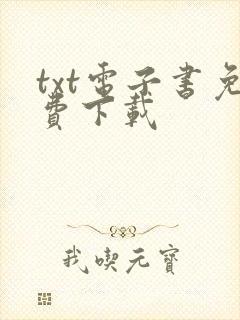 txt电子書免
費下載
我喫元寶